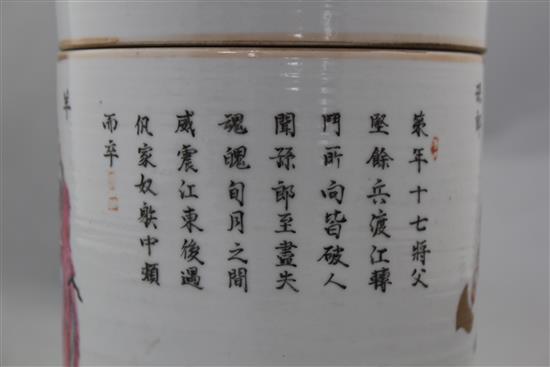 策年十七將父
堅餘兵渡江轉
鬥所向皆破人
聞孫郎至盡失
魂魄旬月之間
威震江東後遇
仇家奴射中頰
而卒
羊